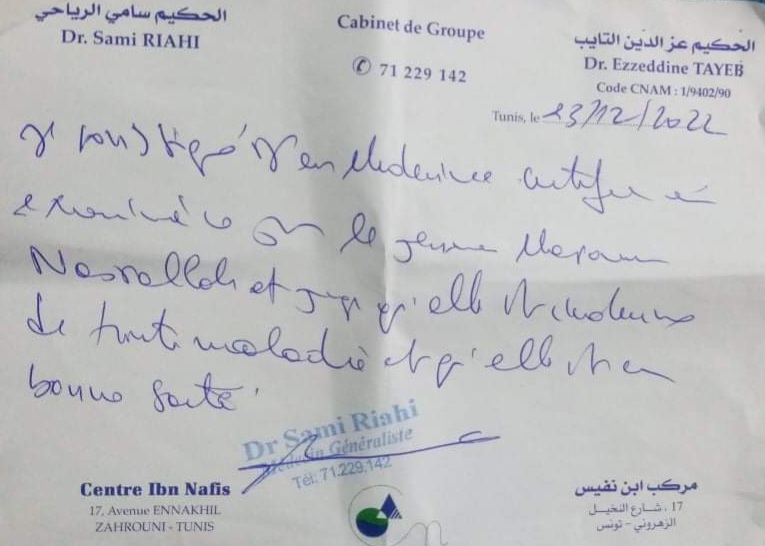 الحكيم سامي الرياحي
Dr. Sami RIAHI
Cabinet de Groupe
✆ 71 229 142
الحكيم عز الدين التايب
Dr. Ezzeddine TAYEB
Code CNAM : 1/9402/90
Tunis, le 23/12/2022
Je soussigné Dr en Médecine certifie
examiné ce jour la jeune Maram
Nasrallah et juge qu'elle est indemne
de toute maladie et qu'elle est en
bonne santé.
Dr Sami Riahi
Médecin Généraliste
Tél: 71.229.142
Centre Ibn Nafis
17, Avenue ENNAKHIL
ZAHROUNI - TUNIS
مركب ابن نفيس
17 ، شارع النخيل
الزهروني - تونس